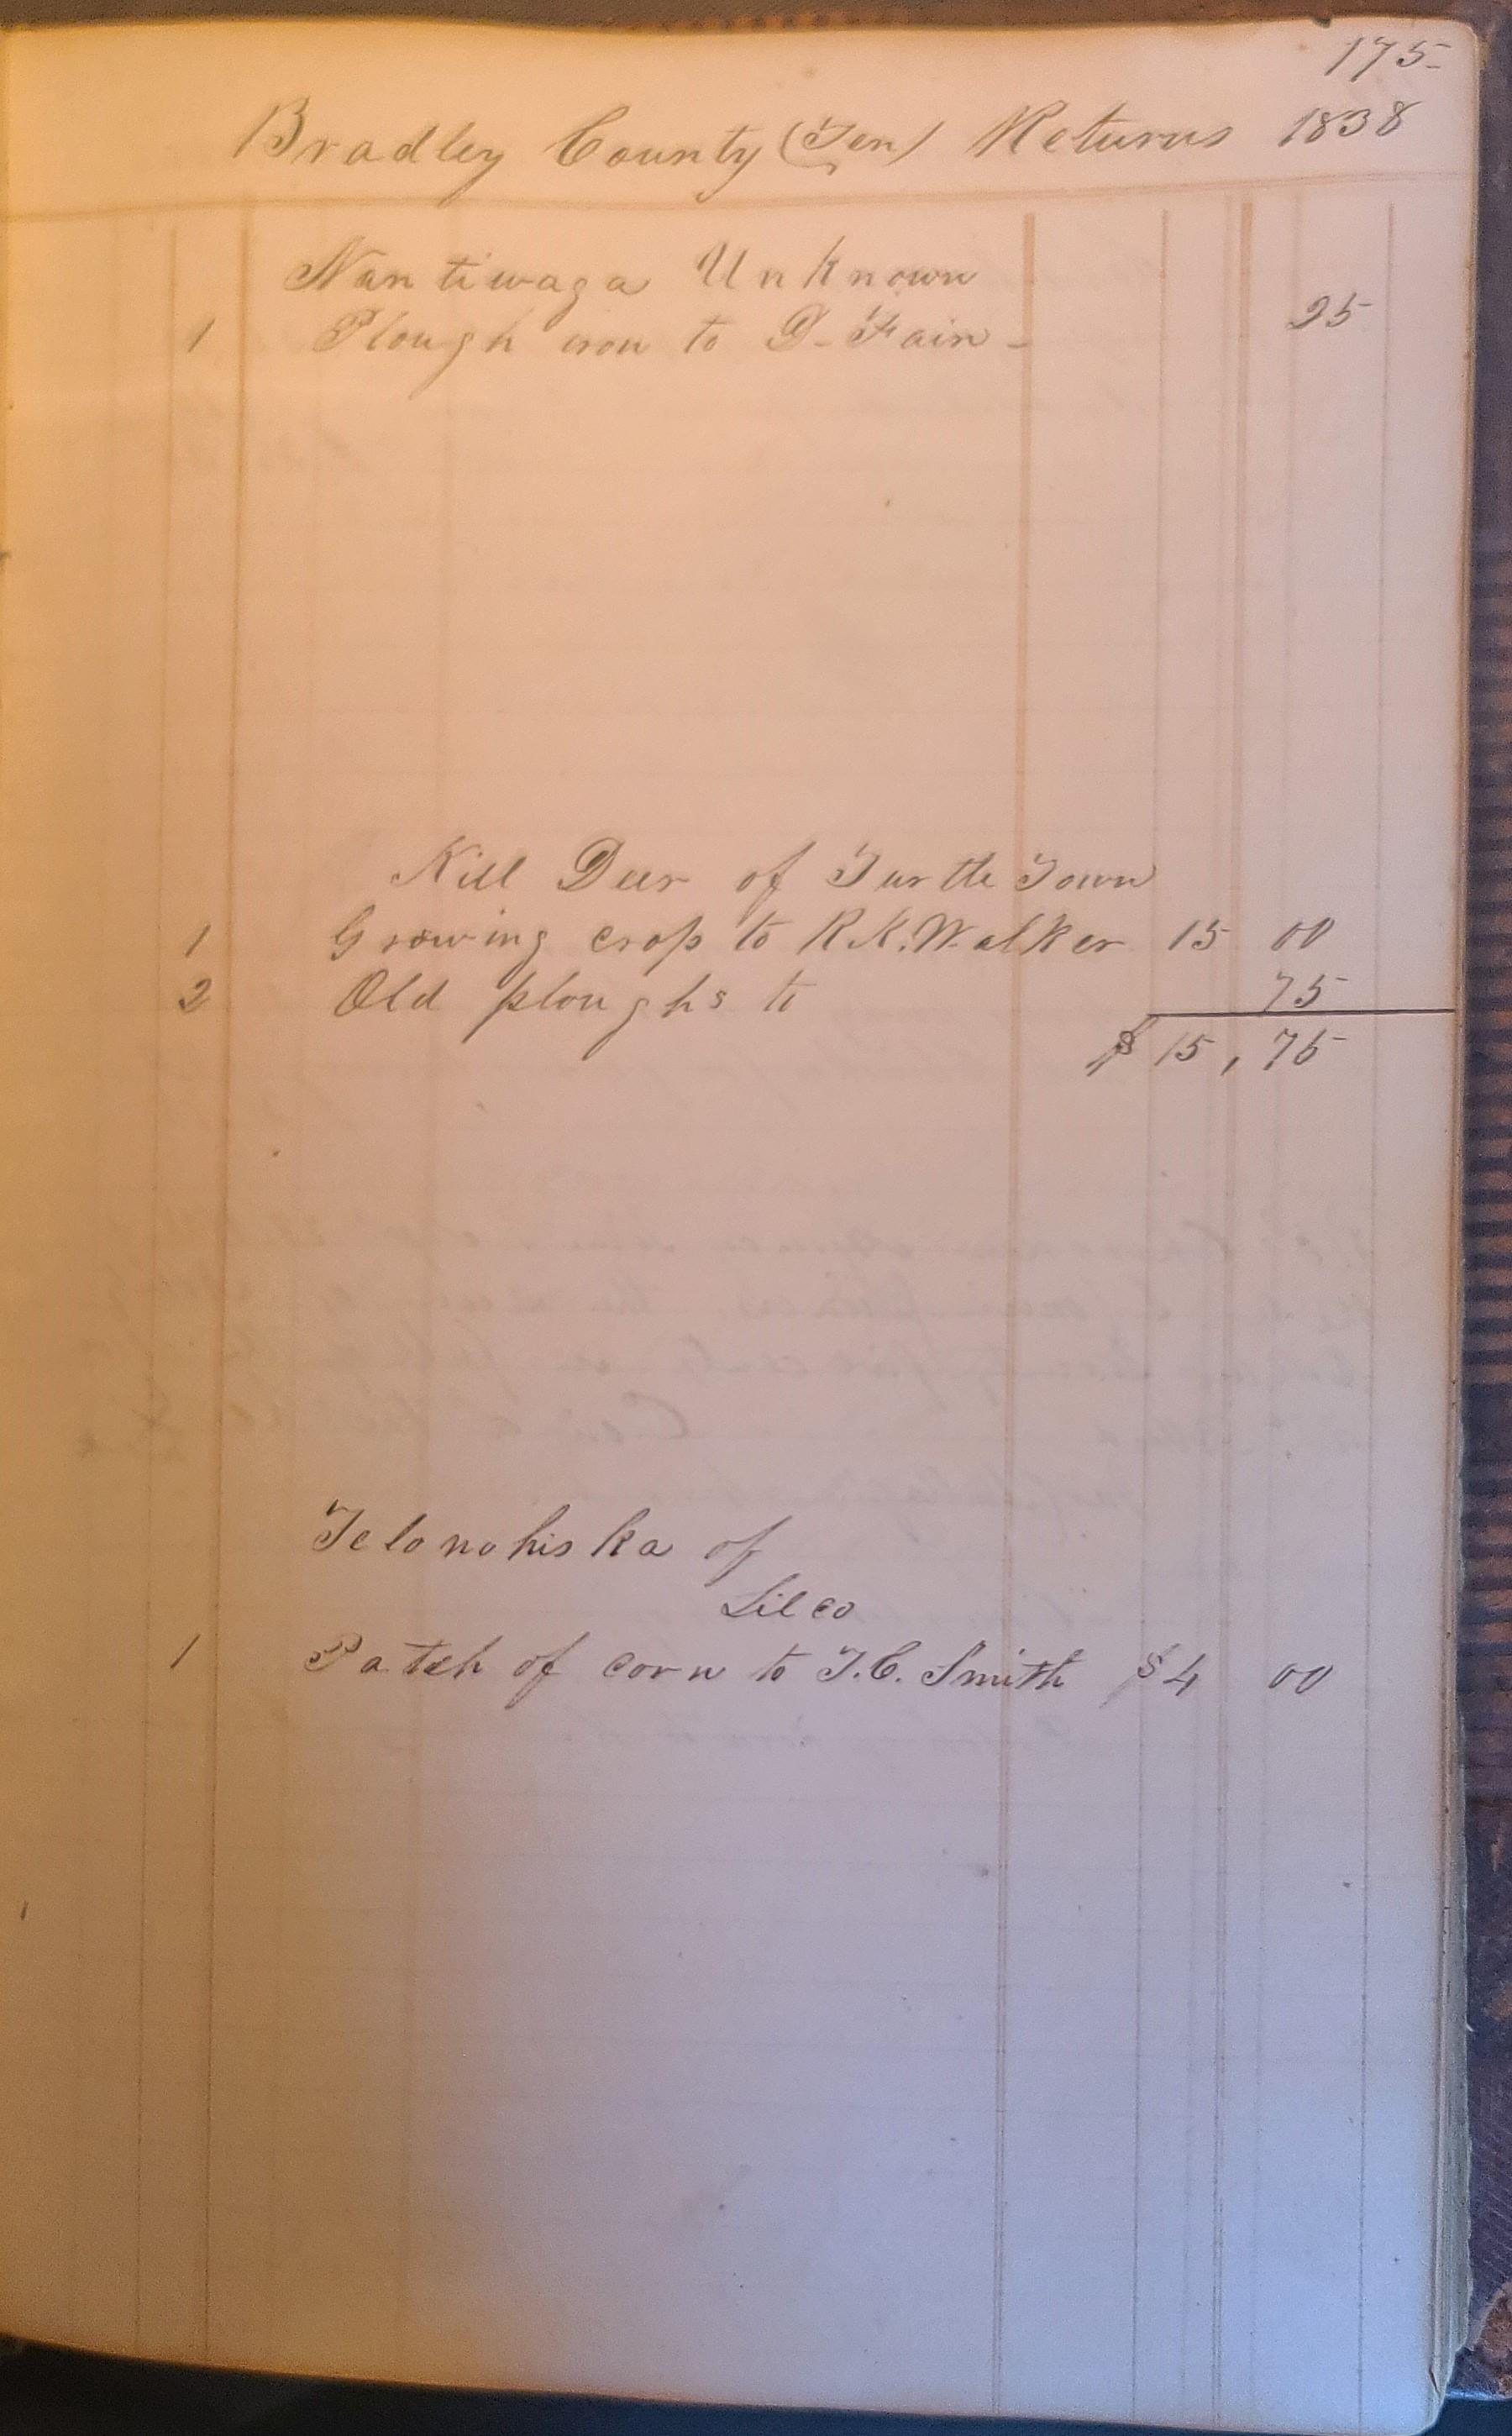 175
Bradley County (Ten) Returns 1838
Nantiwaga Unknown
1 Plough iron to D. Fain 25
Kill Deer of Turtle Town
1 Growing crop to R.K. Walker 15 00
2 Old ploughs to 75
$15,75
Telonohiska of
Lilco
1 Patch of corn to T.C. Smith $4 00